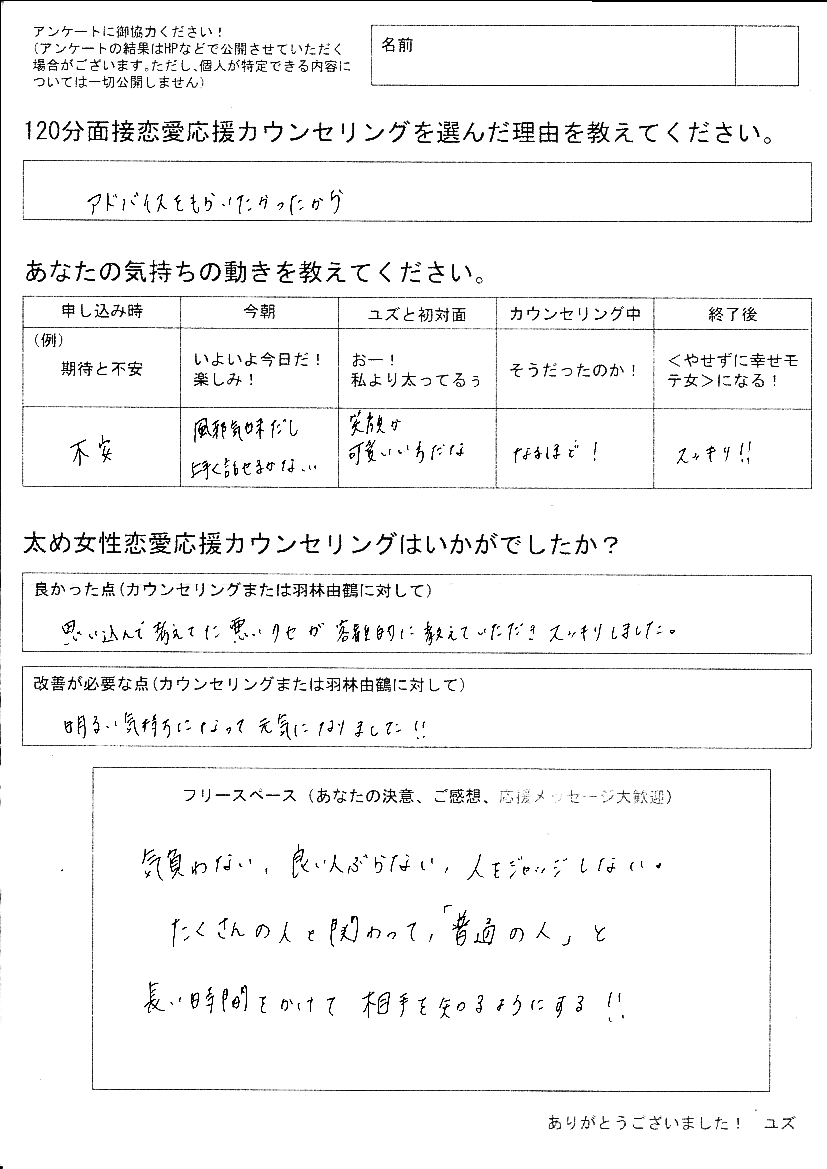 アンケートに御協力ください！
（アンケートの結果はHPなどで公開させていただく
場合がございます。ただし、個人が特定できる内容に
ついては一切公開しません）
名前
120分面接恋愛応援カウンセリングを選んだ理由を教えてください。
アドバイスをもらいたかったから
あなたの気持ちの動きを教えてください。
申し込み時 今朝 ユズと初対面 カウンセリング中 終了後
（例）
期待と不安
いよいよ今日だ！
楽しみ！
おー！
私より太ってるぅ
そうだったのか！
＜やせずに幸せモ
テ女＞になる！
不安
風邪気味だし
上手く話せるかない
笑顔が
可愛いいちだな
なるほど！
スッキリ!!
太め女性恋愛応援カウンセリングはいかがでしたか？
良かった点(カウンセリングまたは羽林由鶴に対して)
思い込んで 教えてた 悪いクセが 客観的に 教えていただき スッキリしました。
改善が必要な点(カウンセリングまたは羽林由鶴に対して)
明るい気持ちになって 元気になりました!!
フリースペース（あなたの決意、ご感想、応援メッセージ大歓迎）
気負わない、良い人ぶらない、人をジャッジしない。
たくさんの人と関わって、「普通の人」と
長い時間をかけて 相手を知るようにする!!
ありがとうございました！ ユズ